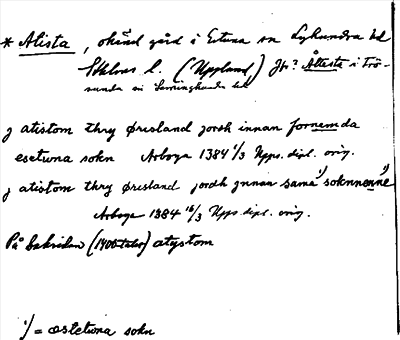 * Alista, okänd gård i Estuna sn Lyhundra hd
Sthlms l. (Uppland) Jfr? Ållesta i Frö-
sunda sn Seminghundra hd
j atistom thry øresland jordh innan fornemda
esetuna sokn Arboga 1384 1/3 Upps. dipl. orig.
j atistom thry øresland jordh jnnan sama 1) soknnenne 1)
Arboga 1384 16/3 Upps. dipl. orig.
På baksidan (1400-talet) atystom
1) = æstetuna sokn